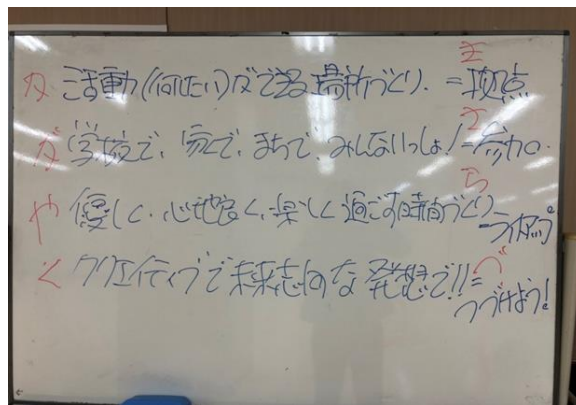 き
か 活動(何したい)ができる場所づくり. =拠点
さ
が 学校で、家で、まちで、みんないっしょ!=参加。
ら
や 優しく、心地良く、楽しく過ごす時間づくり=
づ
く クリエイティブで未来志向な発想で!!=
つづけよう!